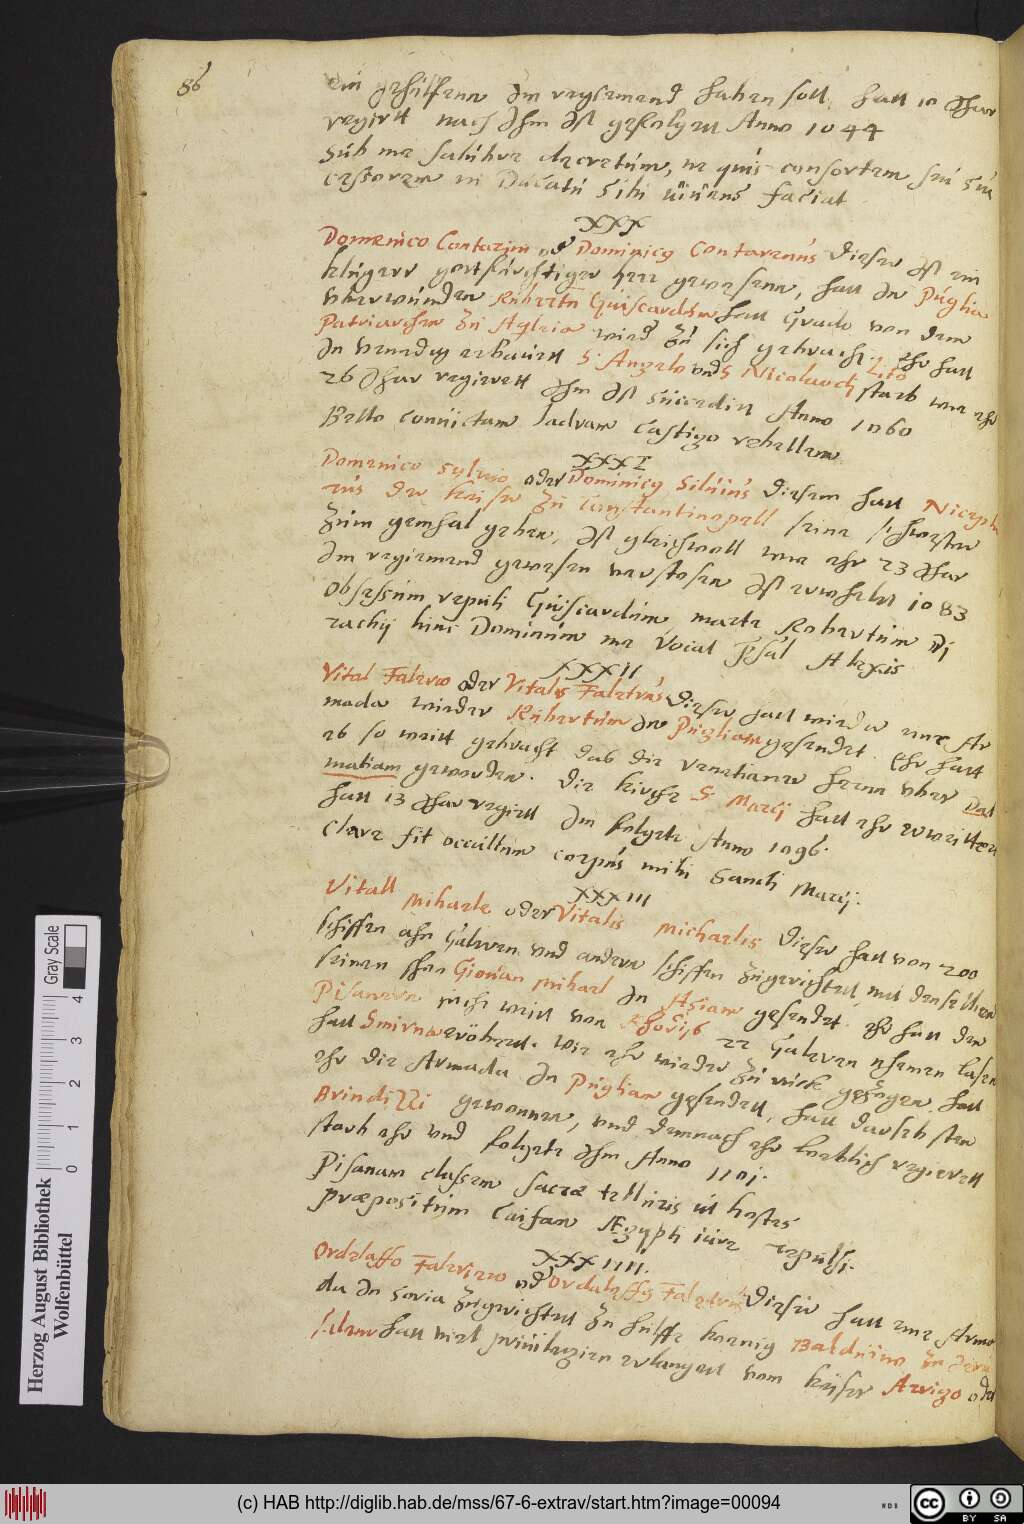 86
ein gehülfenn Jm regiemend haben soll, hatt 10 Jhar
regiertt nach Jhm Jst gefolgett Anno 1044
Sub me salubre decretum, ne quis consortem seu suc
cessorem in Ducatu sibi vivens faciat
XXX
Domenico Contareni od Dominicus Contarenus dieser Jst ein
kluger gottfürchtiger herr gewesenn, hatt Jn Puglia
vberwunden Rubertu Guiscardum hatt Grado von dem
Patriarchen zu Agleia wied zu sich gebracht. Ehr hatt
Jn Venedig erbauett S Angelo vnd S Nicolaodj Lito starb wie ehr
26 Jhar regierett Jhm Jst succedirt Anno 1060
Bello convictam Jadram castigo rebellem
XXXI
Domenico Sylvio oder Dominicus Siluius diesem hatt Nicepho
rus der keiser zu Constantinopell seine schwester
zum gemhal geben, Jst gleichwoll wie ehr 23 Jhar
Jm regiemend gewesen verstosen Jst erwehlet 1083
Obsessum repuli Guiscardum, marte Robertum Di
rachij hinc Dominum me vocat Alexis
XXXII
Vital Falerio oder Vitalis Faletrus Dieser hatt wieder eine Ar
mada wieder Rubertum Jn Pugliam gesendet. Ehr hatt
es so weitt gebracht das die Venetianer herrn vber Dal
matiam geworden. Die kirche S. Marcij hatt ehr erweittert
hatt 13 Jhar regiert Jm folgete Anno 1096.
Clare fit occultum corpus mihi Sancti Marcij.
XXXIII
Vitall Michaele oder Vitalis Michaelis Dieser hatt von 200
schiffen ahn Galeren vnd andere schiffen zugerichtet, mit denselben
seinen shon Giouan Michael Jn Asiam gesendet. ehr hatt den
Pisanern nicht weit von Rhodijs 22 Galeren nhemen lasen
hatt Smirna eröbertt. Wie ehr wieder zu rück gezogen, hatt
ehr die Armada Jn Puglian gesendett, hatt darselbsten
Brindizzi gewonnen, vnd demnach ehr loeblich regierett
starb ehr vnd folgete Jhm Anno 1101.
Pisanam classem sacræ telluris ut hostes
præpositum Caifan Ægypti iure repulsi.
XXXIIII.
Ordelaffo Falerio od Ordelaffus Faletrus Dieser hatt eine Arma
da Jn Soria zugerichtet zu hülffe koenig Balduino zu Jeru
salem hatt viel privilegien erlangett vom keiser Arrigo oder
Herzog August Bibliothek
Wolfenbüttel
0 1 2 3 4
Gray Scale
(c) HAB http://diglib.hab.de/mss/67-6-extrav/start.htm?image=00094
WDB
CC BY SA